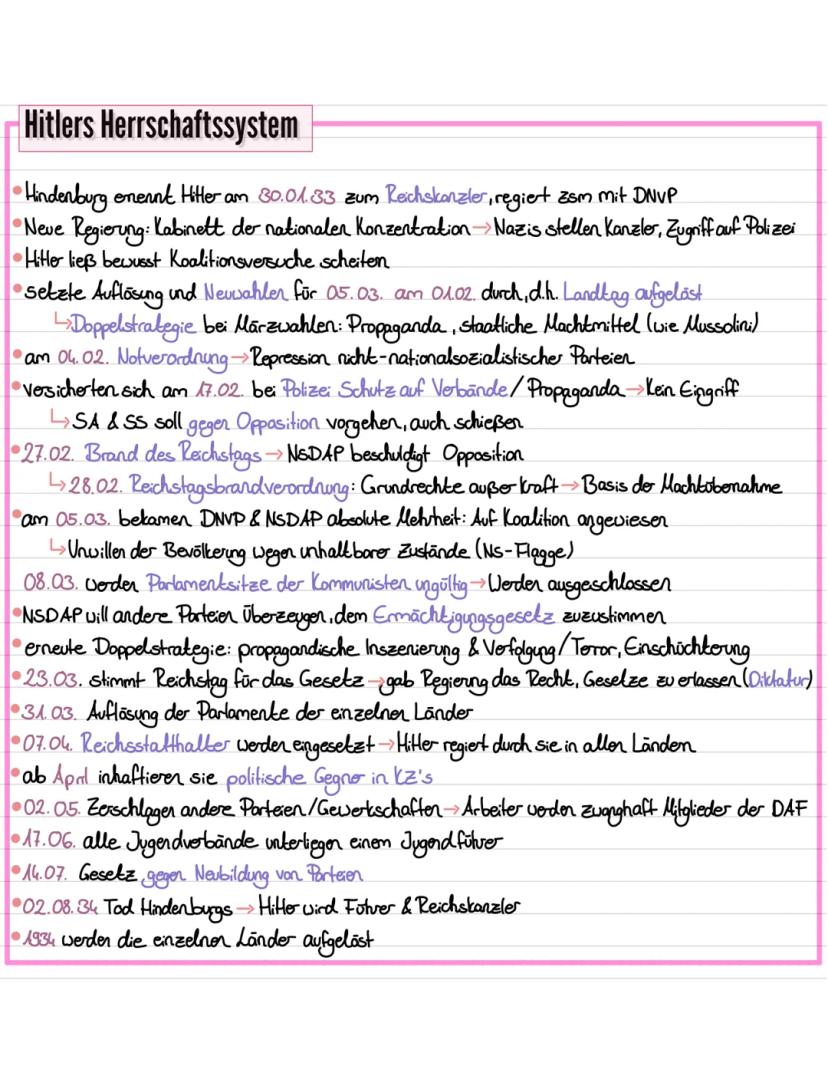 Hitlers Herrschaftssystem
• Hindenburg ernennt Hitler am 30.01.33 zum Reichskanzler, regiert zsm mit DNVP
• Neue Regierung: Kabinett der nationalen Konzentration → Nazis stellen Kanzler, Zugriff auf Polizei
• Hitler ließ bewusst Koalitionsversuche scheitern
• setzte Auflösung und Neuwahlen für 05.03. am 01.02. durch, d.h. Landtag aufgelöst
↳ Doppelstrategie bei Märzwahlen: Propaganda, staatliche Machtmittel (wie Mussolini)
• am 04.02. Notverordnung → Repression nicht-nationalsozialistischer Parteien
• versicherten sich am 17.02. bei Polizei Schutz auf Verbände/Propaganda → Kein Eingriff
↳ SA & SS soll gegen Opposition vorgehen, auch schießen
• 27.02. Brand des Reichstags → NSDAP beschuldigt Opposition
↳ 28.02. Reichstagsbrandverordnung: Grundrechte außer Kraft → Basis der Machtübernahme
• am 05.03. bekamen DNVP & NSDAP absolute Mehrheit: Auf Koalition angewiesen
↳ Unwillen der Bevölkerung wegen unhaltbarer Zustände (NS-Flagge)
08.03. werden Parlamentsitze der Kommunisten ungültig → Werden ausgeschlossen
• NSDAP will andere Parteien überzeugen, dem Ermächtigungsgesetz zuzustimmen
• erneute Doppelstrategie: propagandische Inszenierung & Verfolgung/Terror, Einschüchterung
• 23.03. stimmt Reichstag für das Gesetz → gab Regierung das Recht, Gesetze zu erlassen (Diktatur)
• 31.03. Auflösung der Parlamente der einzelnen Länder
• 07.04. Reichsstatthalter werden eingesetzt → Hitler regiert durch sie in allen Ländern
• ab April inhaftieren sie politische Gegner in KZ's
• 02.05. Zerschlagen andere Parteien/Gewerkschaften → Arbeiter werden zwanghaft Mitglieder der DAF
• 17.06. alle Jugendverbände unterliegen einem Jugendführer
• 14.07. Gesetz gegen Neubildung von Parteien
• 02.08.34 Tod Hindenburgs → Hitler wird Führer & Reichskanzler
• 1934 werden die einzelnen Länder aufgelöst